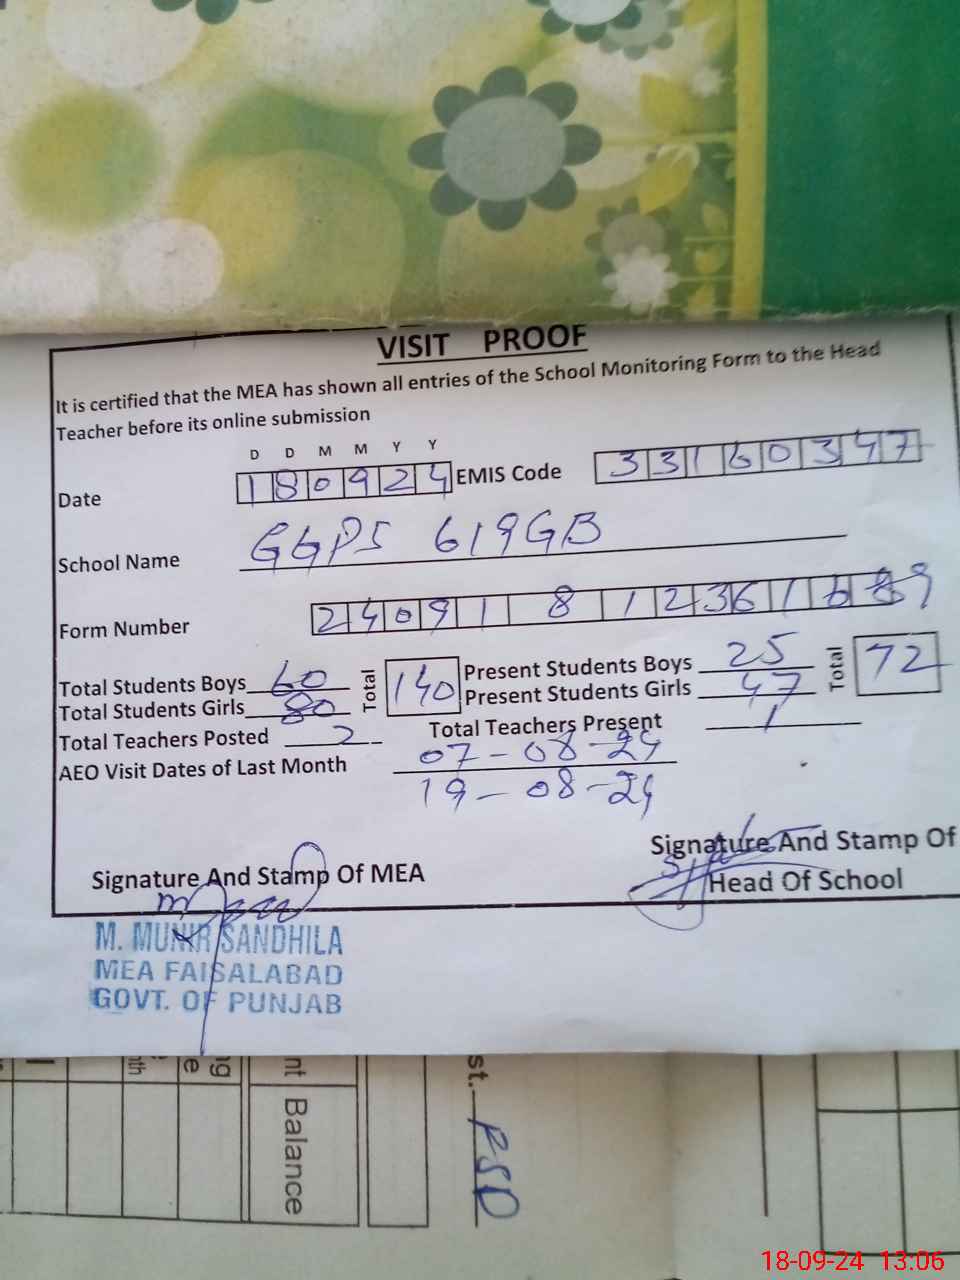 VISIT PROOF
It is certified that the MEA has shown all entries of the School Monitoring Form to the Head
Teacher before its online submission
D D M M Y Y
Date 180924 EMIS Code 33160347
School Name GGPS 619GB
Form Number 24091 8 123616
Total Students Boys 60 Total 140 Present Students Boys 25 Total 72
Total Students Girls 80 Present Students Girls 47
Total Teachers Posted 2 Total Teachers Present 1
AEO Visit Dates of Last Month 07-08-24
19-08-24
Signature And Stamp Of MEA
Signature And Stamp Of
Head Of School
M. MUNIR SANDHILA
MEA FAISALABAD
GOVT. OF PUNJAB
Balance
st. PSD
18-09-24 13:06